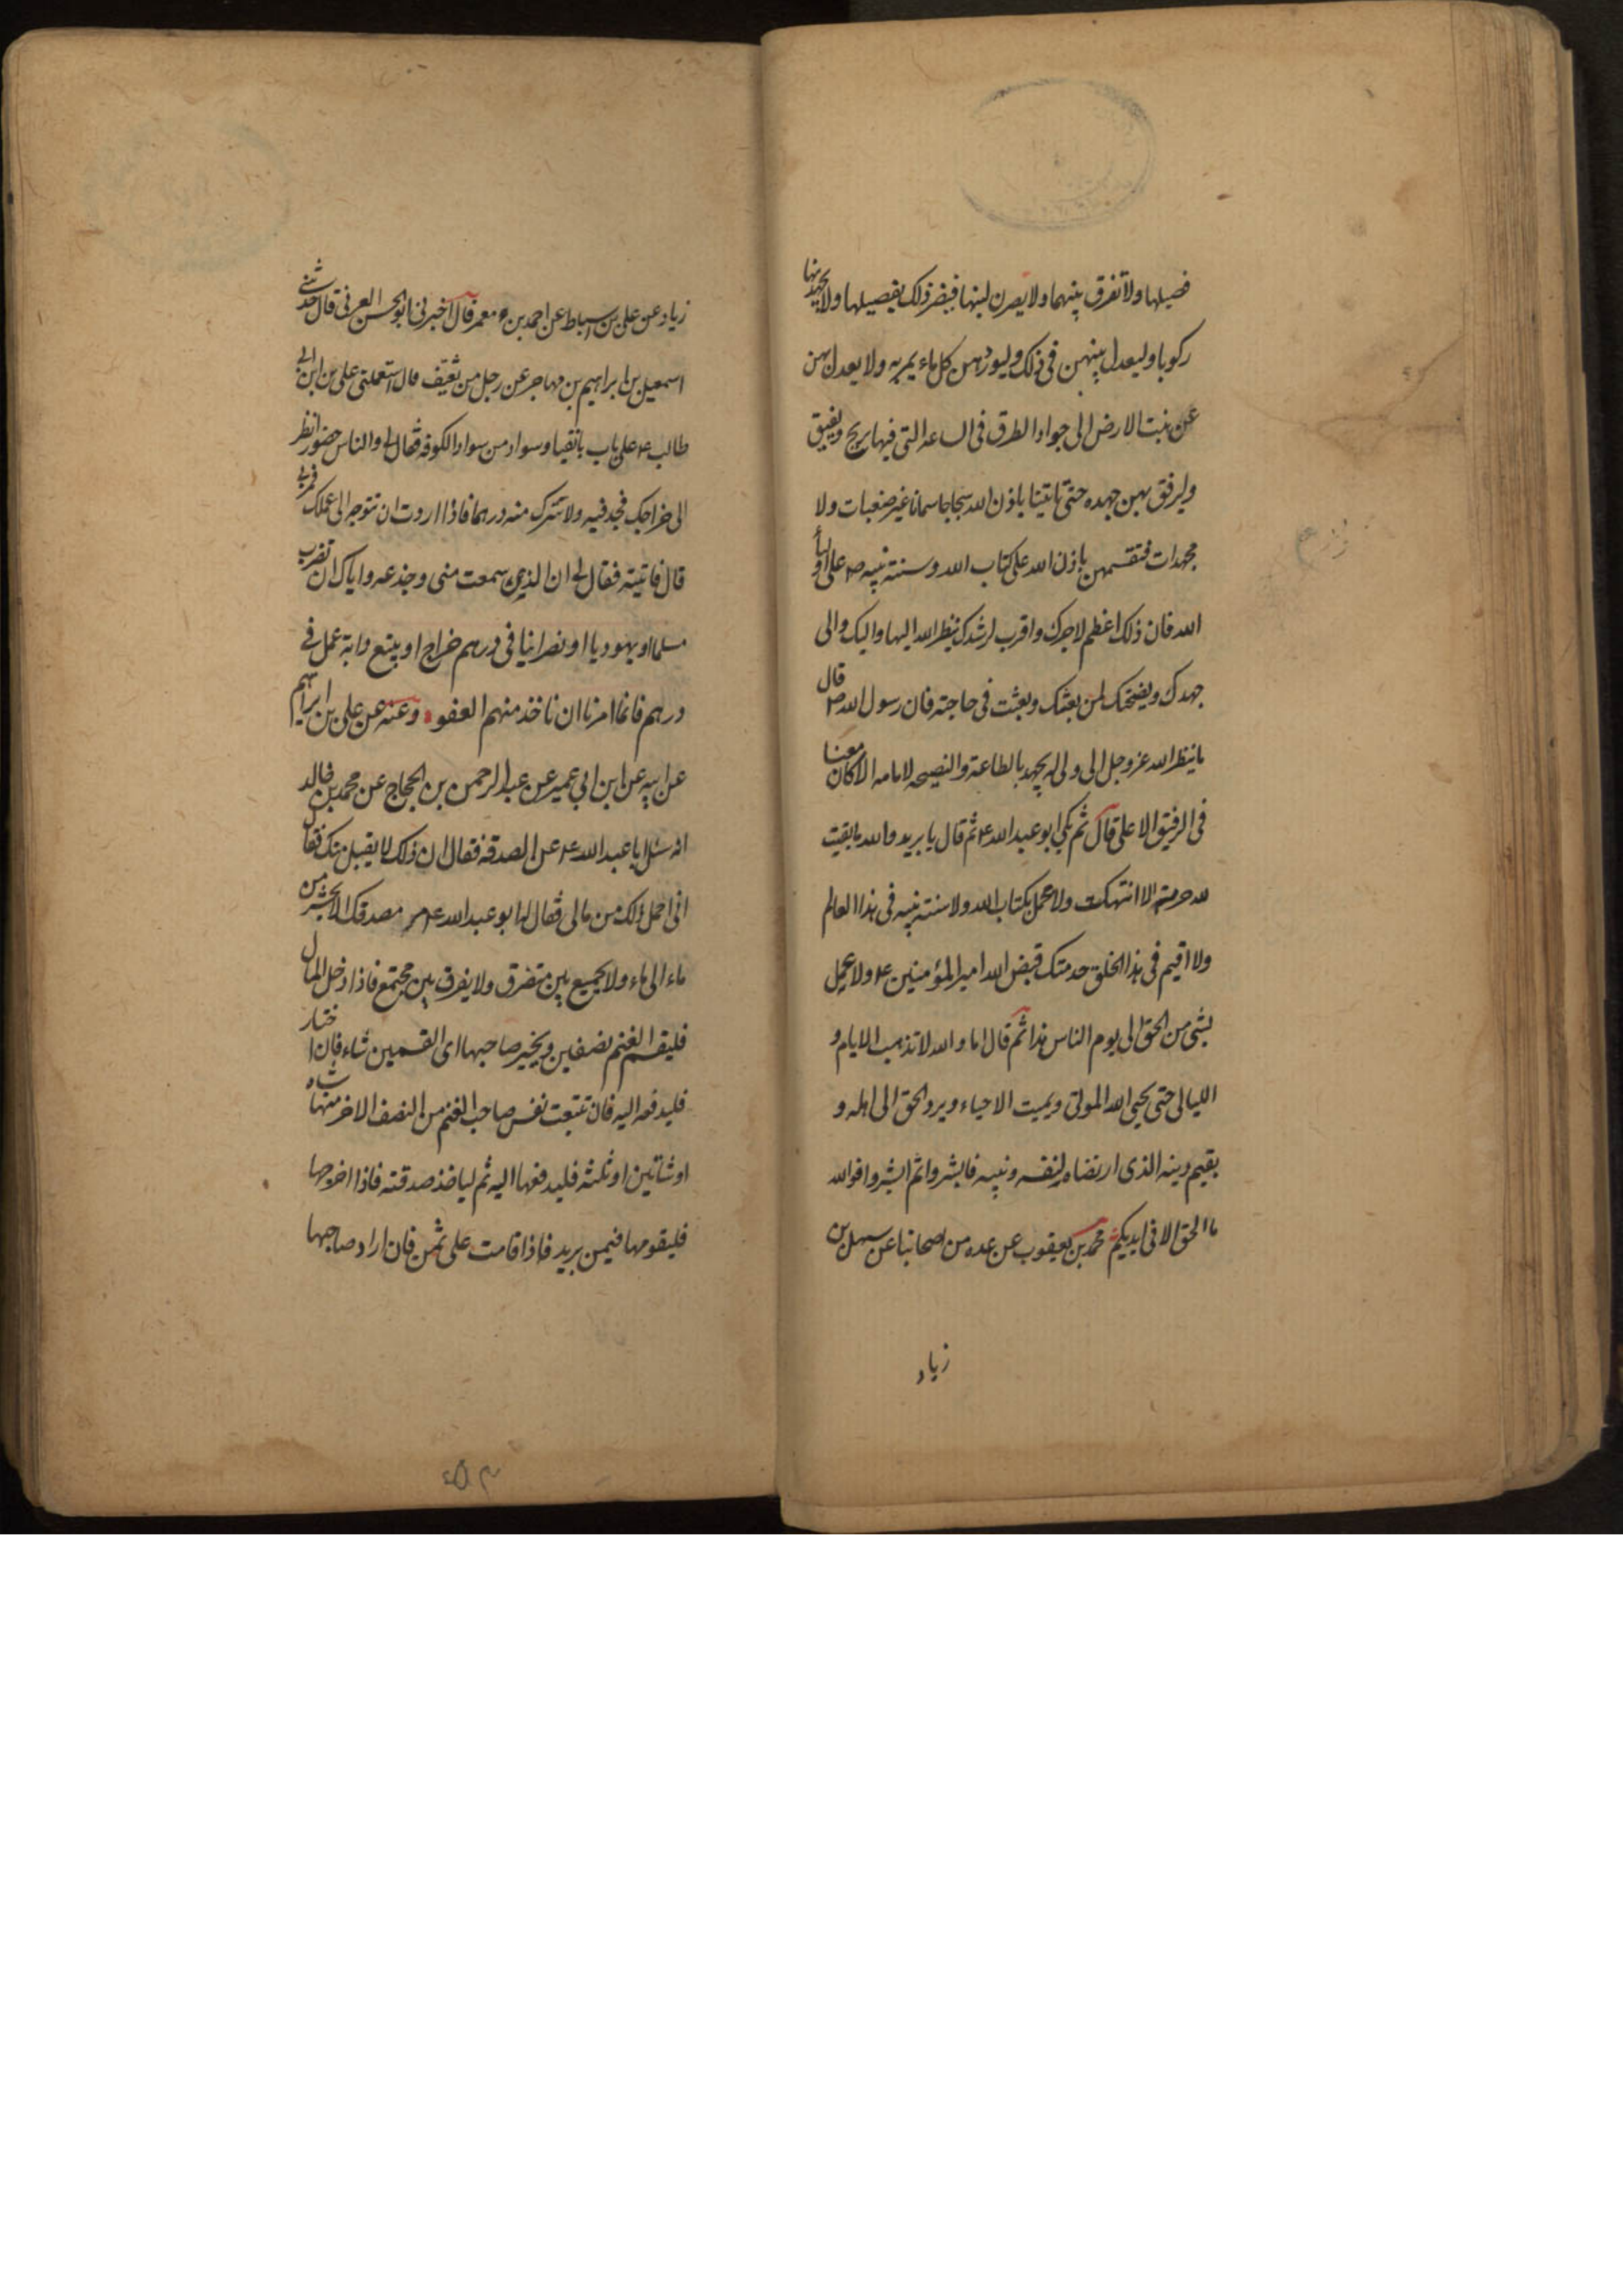 فصيلها ولا تفرق بينهما ولا يصرن لبنها فيضر ذلك بفصيلها ولا يجهدنها
ركوبا وليعدل بينهن في ذلك وليوردهن كل ماء يمر به ولا يعدل بهن
عن نبت الارض الى جواد الطرق في الساعه التي فيها يريح ويغبق
وليرفق بهن جهده حتى تاتينا باذن الله سجاجا سمانا غير متعبات ولا
مجهدات فتقسمهن باذن الله على كتاب الله وسنته نبيه ص على اوليأ
الله فان ذلك اعظم لاجرك واقرب لرشدك ينظر الله اليها واليك والى
جهدك ونصيحتك لمن بعثك وبعثت في حاجته فان رسول الله ص قال
ما ينظر الله عز وجل الى ولي له يجهد بالطاعة والنصيحه لامامه الا كان معنا
في الرفيق الاعلى قال ثم بكى ابو عبد الله ع ثم قال يا بريد والله ما بقيت
لله حرمة الا انتهكت ولا عمل بكتاب الله ولا سنته نبيه في هذا العالم
ولا اقيم في هذا الخلق حد منذ قبض الله امير المؤمنين ع ولا عمل
بشئ من الحق الى يوم الناس هذا ثم قال اما والله لا تذهب الايام و
الليالي حتى يحيى الله الموتى ويميت الاحياء ويرد الحق الى اهله و
يقيم دينه الذى ارتضاه لنفسه ونبيه فابشروا ثم ابشروا فو الله
ما الحق الا في ايديكم محمد بن يعقوب عن عده من اصحابنا عن سهل بن
زياد
زياد عن على بن اسباط عن احمد بن معمر قال اخبرنى ابو الحسن العرنى قال حدثنى
اسمعيل بن ابراهيم بن مهاجر عن رجل من ثقيف قال استعملنى على بن ابى
طالب ع على باب بانقيا وسواد من سواد الكوفه فقال لى والناس حضور انظر
الى خراجك فجد فيه ولا تترك منه درهما فاذا اردت ان تتوجه الى عملك فمر بى
قال فاتيته فقال لى ان الذى سمعت منى وخدعه واياك ان تضرب
مسلما او يهوديا او نصرانيا فى درهم خراج او يبتع دابة عمل فى
درهم فانما امرنا ان ناخذ منهم العفو وعنه عن على بن ابراهيم
عن ابيه عن ابن ابي عمير عن عبد الرحمن بن الحجاج عن محمد بن خالد
انه سئل ابا عبد الله ع عن الصدقه فقال ان ذلك لا يقبل منك فقال
انى احمل ذلك من مالى فقال له ابو عبد الله ع مر مصدقك الا يحشر من
ماء الى ماء ولا يجمع بين متفرق ولا يفرق بين مجتمع فاذا دخل المال
فليقسم الغنم نصفين ويخير صاحبها اى القسمين شاء فان اختار
فليدفعه اليه فان تتبعت نفس صاحب الغنم من النصف الاخر منها شاه
او شاتين او ثلثه فليدفعها اليه ثم لياخذ صدقته فاذا اخرجها
فليقومها فيمن يريد فاذا قامت على ثمن فان اراد صاحبها